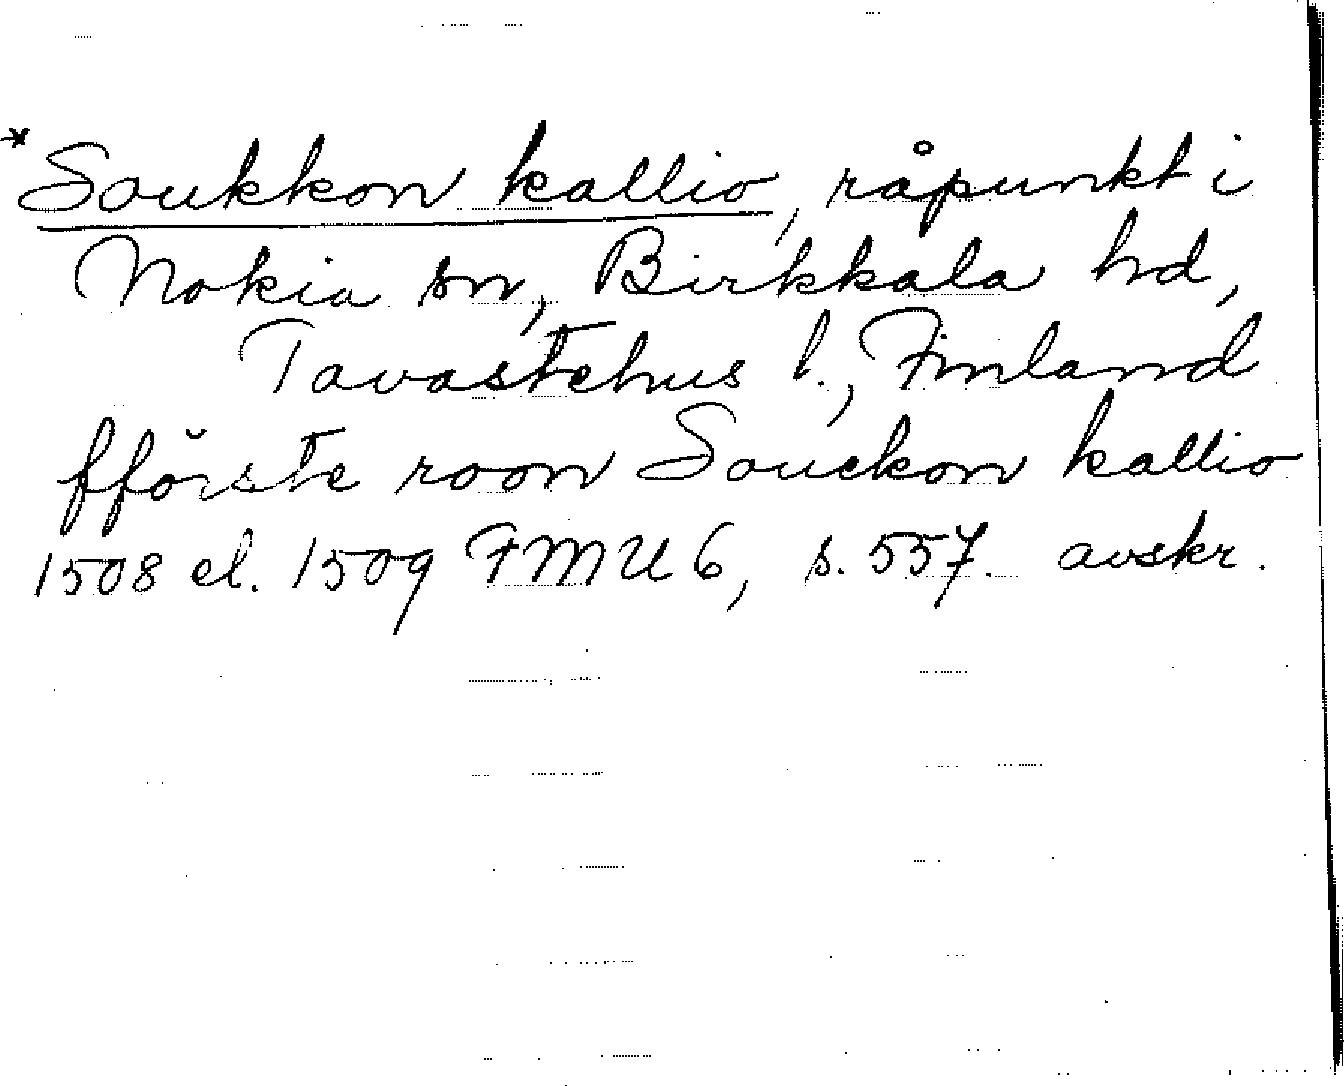 *Soukkon kallio, råpunkt i
Nokia sn, Birkkala hd,
Tavastehus l., Finland
fförste roon Souckon kallio
1508 el. 1509 FMU 6, s. 557. avskr.